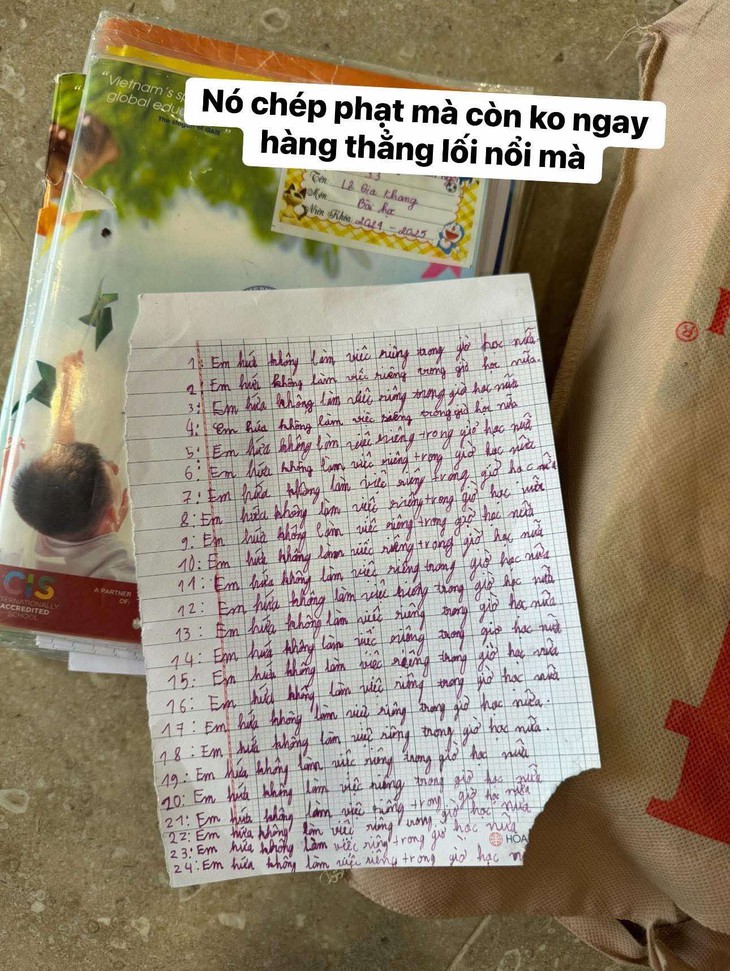 "Vietnam's sp
global edu
Nó chép phạt mà còn ko ngay
hàng thẳng lối nổi mà
Tên: Lê Gia Khang
Môn: Bài học
Niên Khóa 2024 - 2025
1: Em hứa không làm việc riêng trong giờ học nữa.
2: Em hứa không làm việc riêng trong giờ học nữa.
3: Em hứa không làm việc riêng trong giờ học nữa
4: Em hứa không làm việc riêng trong giờ học nữa
5: Em hứa không làm việc riêng trong giờ học nữa
6: Em hứa không làm việc riêng trong giờ học nữa
7: Em hứa không làm việc riêng trong giờ học nữa
8: Em hứa không làm việc riêng trong giờ học nữa
9: Em hứa không làm việc riêng trong giờ học nữa
10: Em hứa không làm việc riêng trong giờ học nữa
11: Em hứa không làm việc riêng trong giờ học nữa
12: Em hứa không làm việc riêng trong giờ học nữa
13: Em hứa không làm việc riêng trong giờ học nữa
14: Em hứa không làm việc riêng trong giờ học nữa
15: Em hứa không làm việc riêng trong giờ học nữa
16: Em hứa không làm việc riêng trong giờ học nữa
17: Em hứa không làm việc riêng trong giờ học nữa.
18: Em hứa không làm việc riêng trong giờ học nữa.
19: Em hứa không làm việc riêng trong giờ học nữa
20: Em hứa không làm việc riêng trong giờ học nữa
21: Em hứa không làm việc riêng trong giờ học nữa
22: Em hứa không làm việc riêng trong giờ học nữa
23: Em hứa không làm việc riêng trong giờ học nữa
24: Em hứa không làm việc riêng trong giờ học n
HOA
CIS
INTERNATIONALLY
ACCREDITED
SCHOOL
A PARTNER
OF:
®